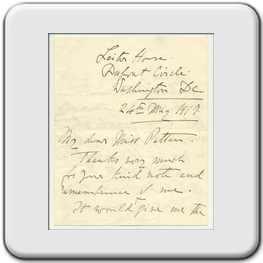 Leiter House
Dupont Circle
Washington D.C.
24th May 1917
My dear Miss Patten.
Thanks very much
for your kind note and
remembrance of me.
It would give me the